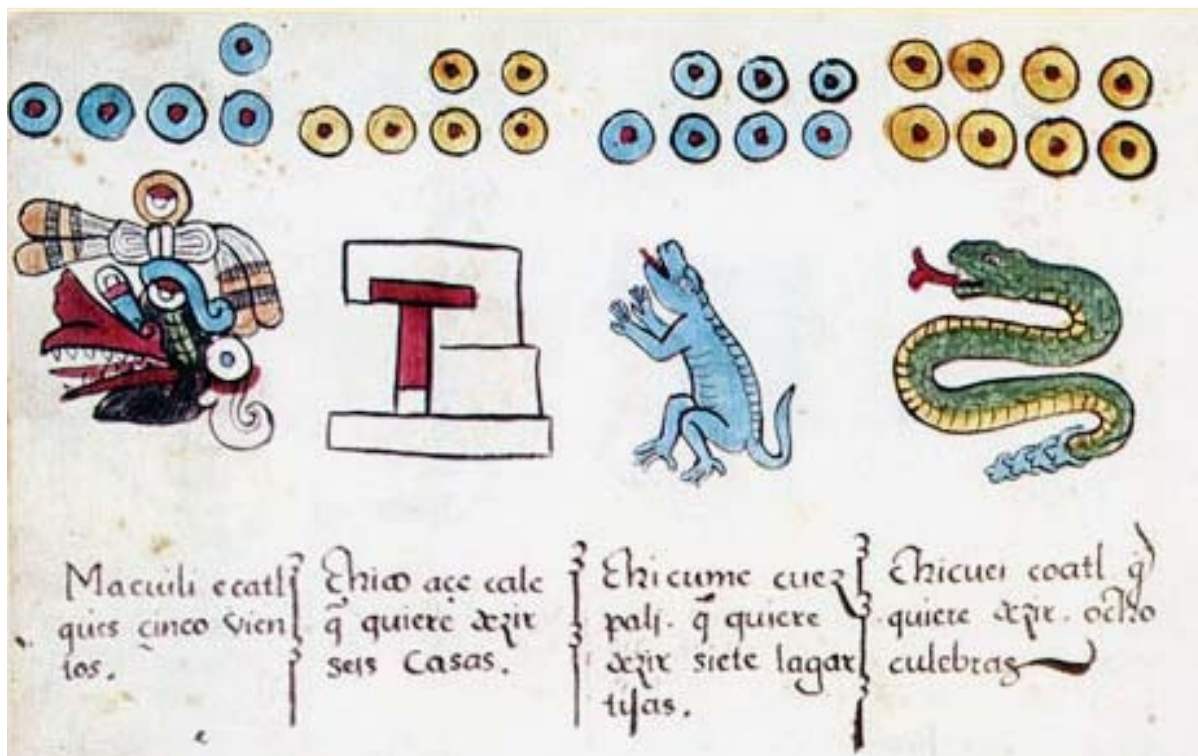 Macuili ecatl
ques çinco vien
tos.
Chico açe cale
q̃ quiere dezir
seis Casas.
Chicume cuez
pali. q̃ quiere
dezir siete lagar
tijas.
Chicuei coatl q̃
quiere dezir. ocho
culebras